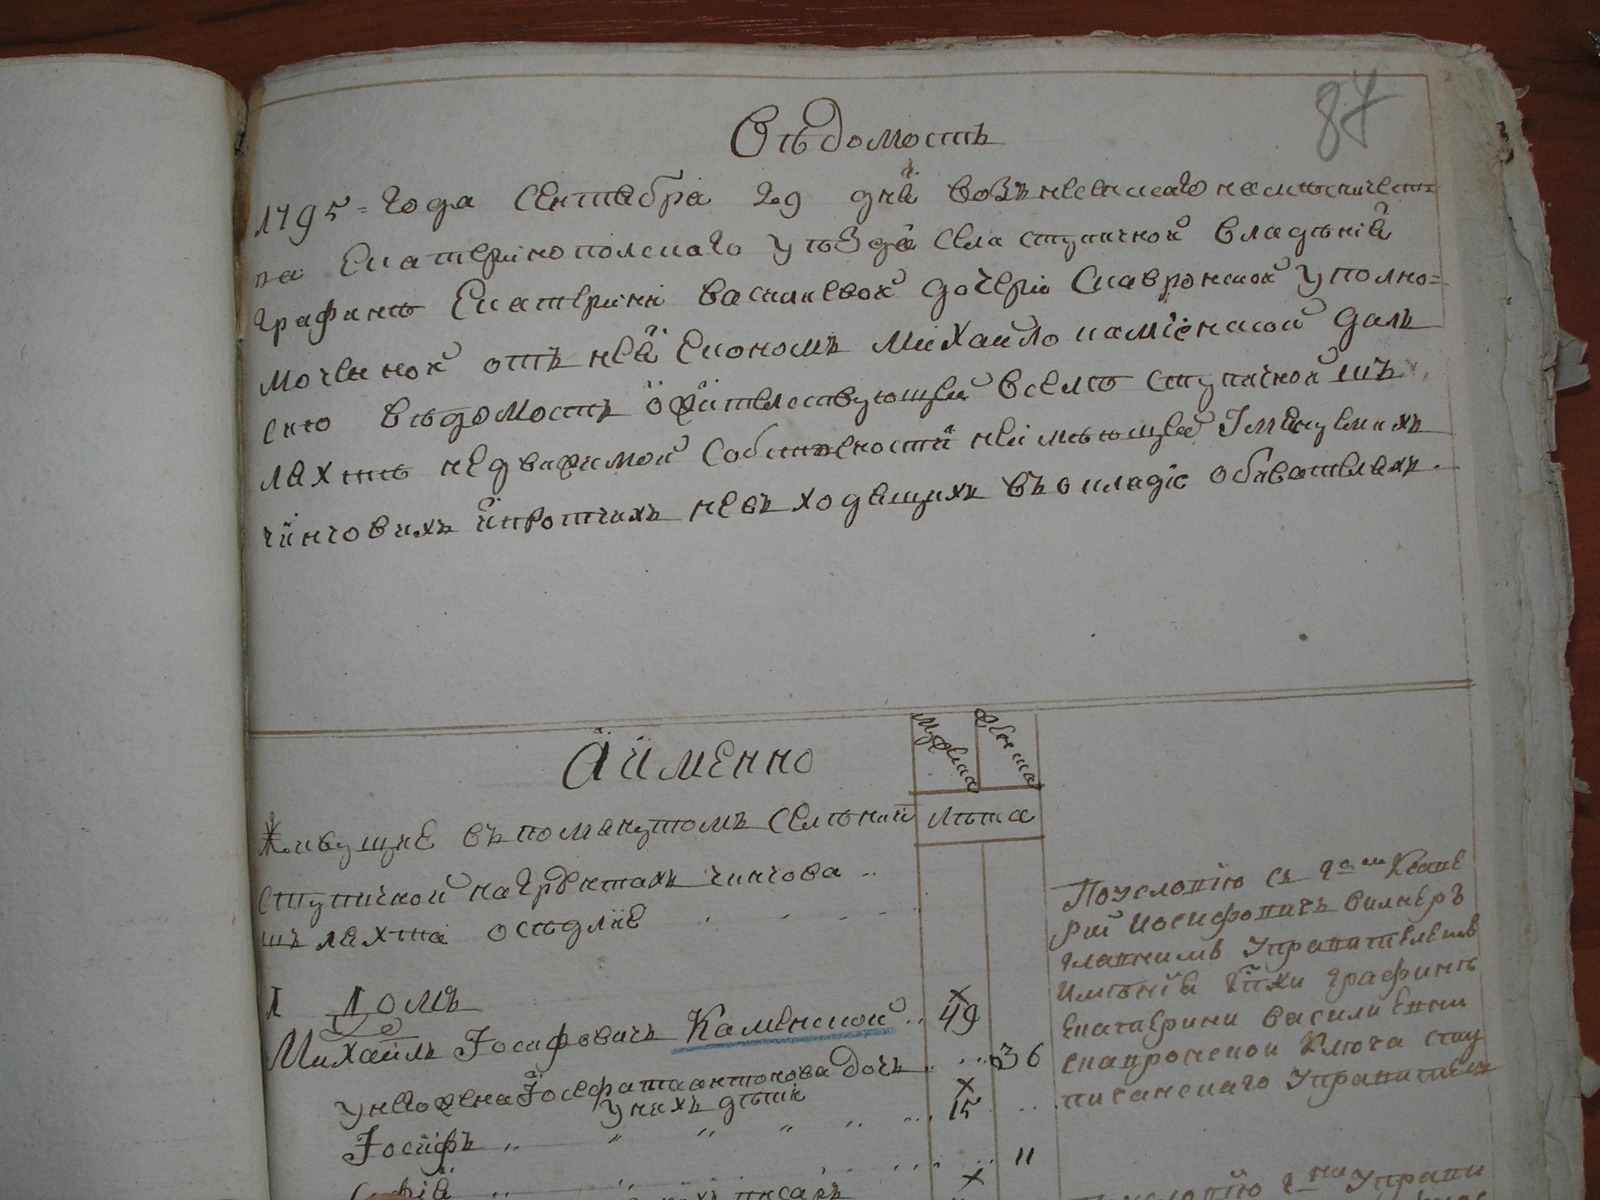 87
Вѣдомостъ
1795 = года Сентебра 29 днѧ вознесенскаго намѣсничест=
ва Екатеринополскаго уѣзда села ступичной владѣнія
графинѣ Екатерини василевой дочери Скавронской уполно=
моченной отъ неѧ Економъ Михайло каменской далъ
сию вѣдомостъ ѡжителствующей всемѣ ступичной шъ
лахтѣ недвижимой собствености неимѣющей
чинчовихъ ипротчихъ невъ ходящихъ въ окладъ обивателѧхъ.
Аименно
Мужеска
Женска
Живущие въ помянутомъ селѣнии
лѣта
ступичной на грунтахъ чинчова
шъ лѧхта оседлие
1 домъ
Михайлъ Іосифовичъ Каменской .. 49
у него жена Іосефата антонова дочъ 36
у нихъ дѣти
Іосифъ 15
Софія 11
писаръ
По условію съ
рий Иосифовичъ вилнеръ
главнимъ Управителемъ
имѣній графинѣ
Екатерини василиевни
скавронской ключа сту
пичанскаго Управителъ
Управи